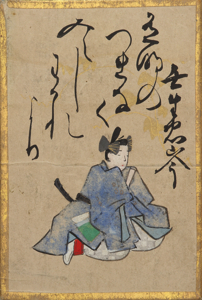 壬生忠岑
有明の
つれなく
みえし
わかれ
より